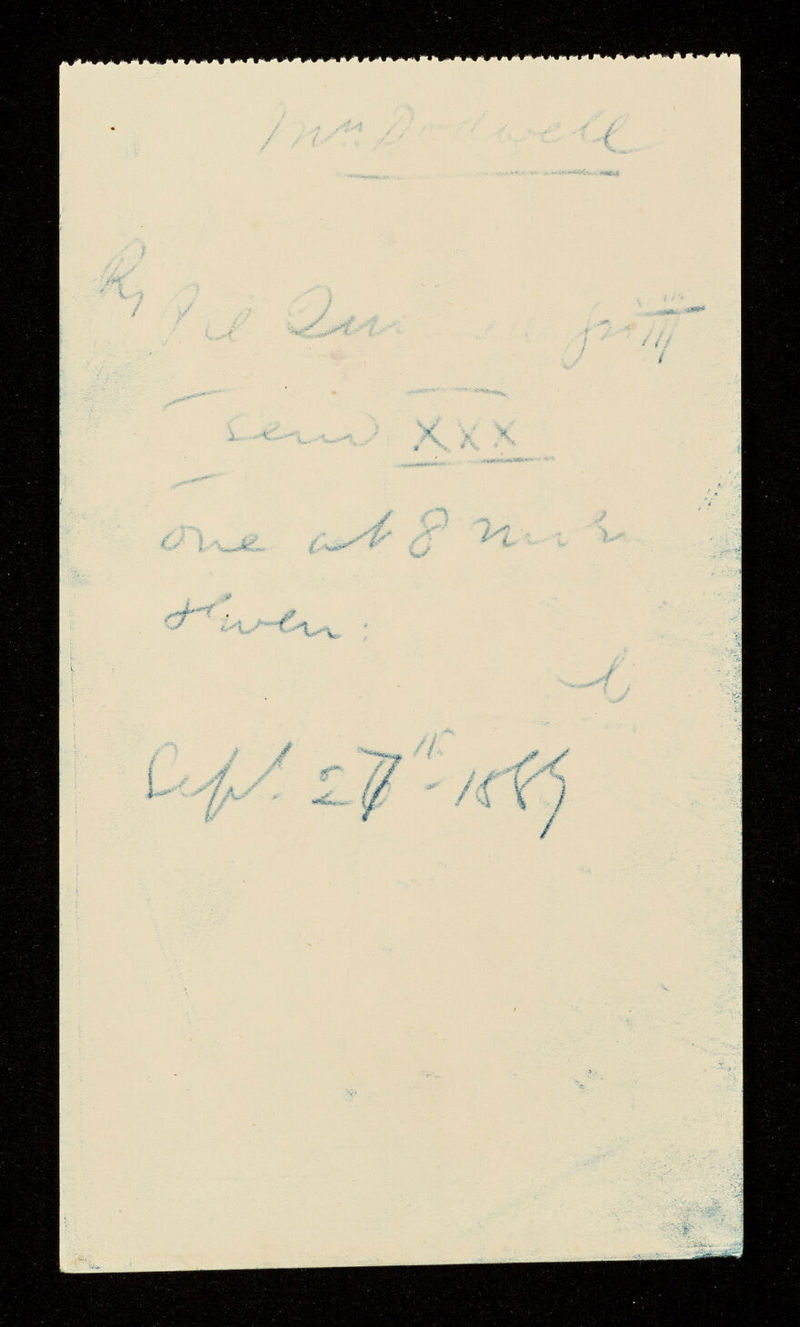 Mrs. Dodwell
Rx Pil Quin gr iii
send XXX
one at 8 morn
& even:
Sept. 27th - 1889